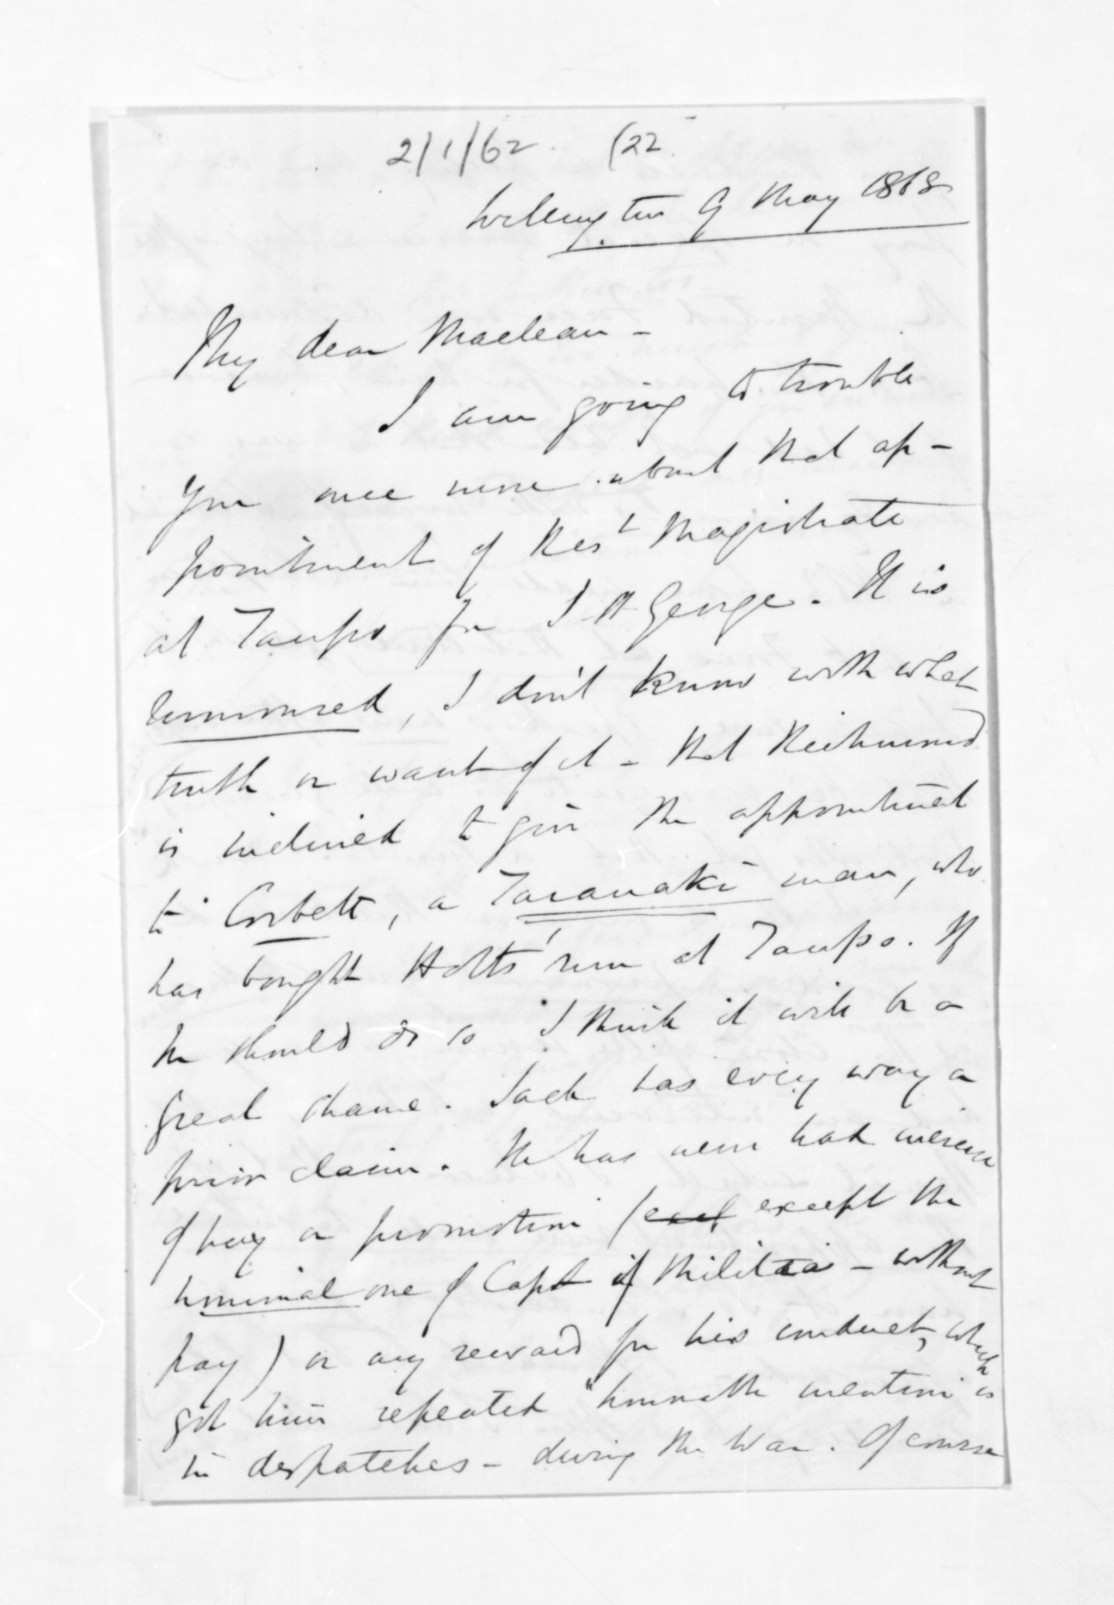 2/1/62. (22
Wellington 9 May 1868
My dear Maclean -
I am going to trouble
you once more about that ap-
pointment of Rest Magistrate
at Taupo for J. H George. It is
rumoured, I don't know with what
truth or want of it - that Richmond
is inclined to give the appointment
to Corbett, a Taranaki man, who
has bought Holts' run at Taupo. If
he should do so I think it will be a
great shame. Jack has every way a
prior claim. He has never had increase
of pay or promotion ( except the
nominal one of Capt of Militia - without
pay) or any reward for his conduct, which
got him repeated "honorable mention"
in despatches - during the War. Of course